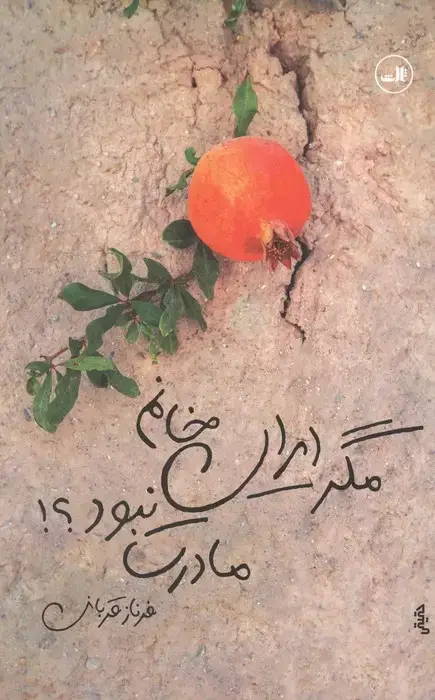 ثالث
مگر ایران خانم
مادرت نبود؟!
فرناز قربانی
حقیقی